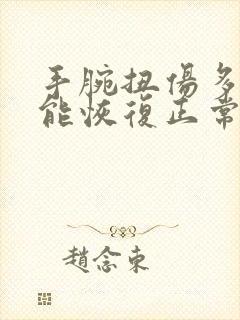 手腕扭傷多
能恢復正常
趙念東